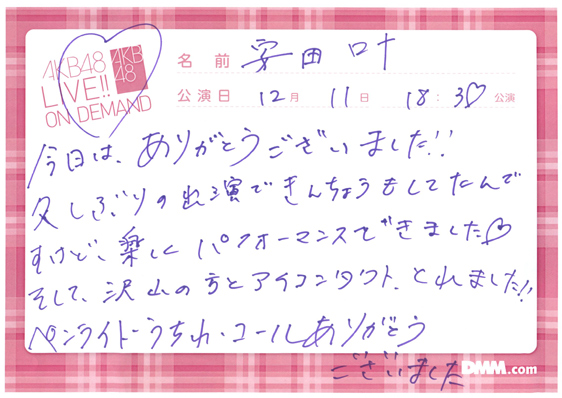 AKB48
LIVE!!
ON DEMAND
AKB
48
名前 安田 叶
公演日 12月 11日 18:30 公演
今日は、ありがとうございました!!
久しぶりの出演できんちょうもしてたんで
すけど、楽しくパフォーマンスできました♡
そして、沢山の方とアイコンタクト、とれました!!
ペンライト・うちわ・コールありがとう
ございました
DMM.com